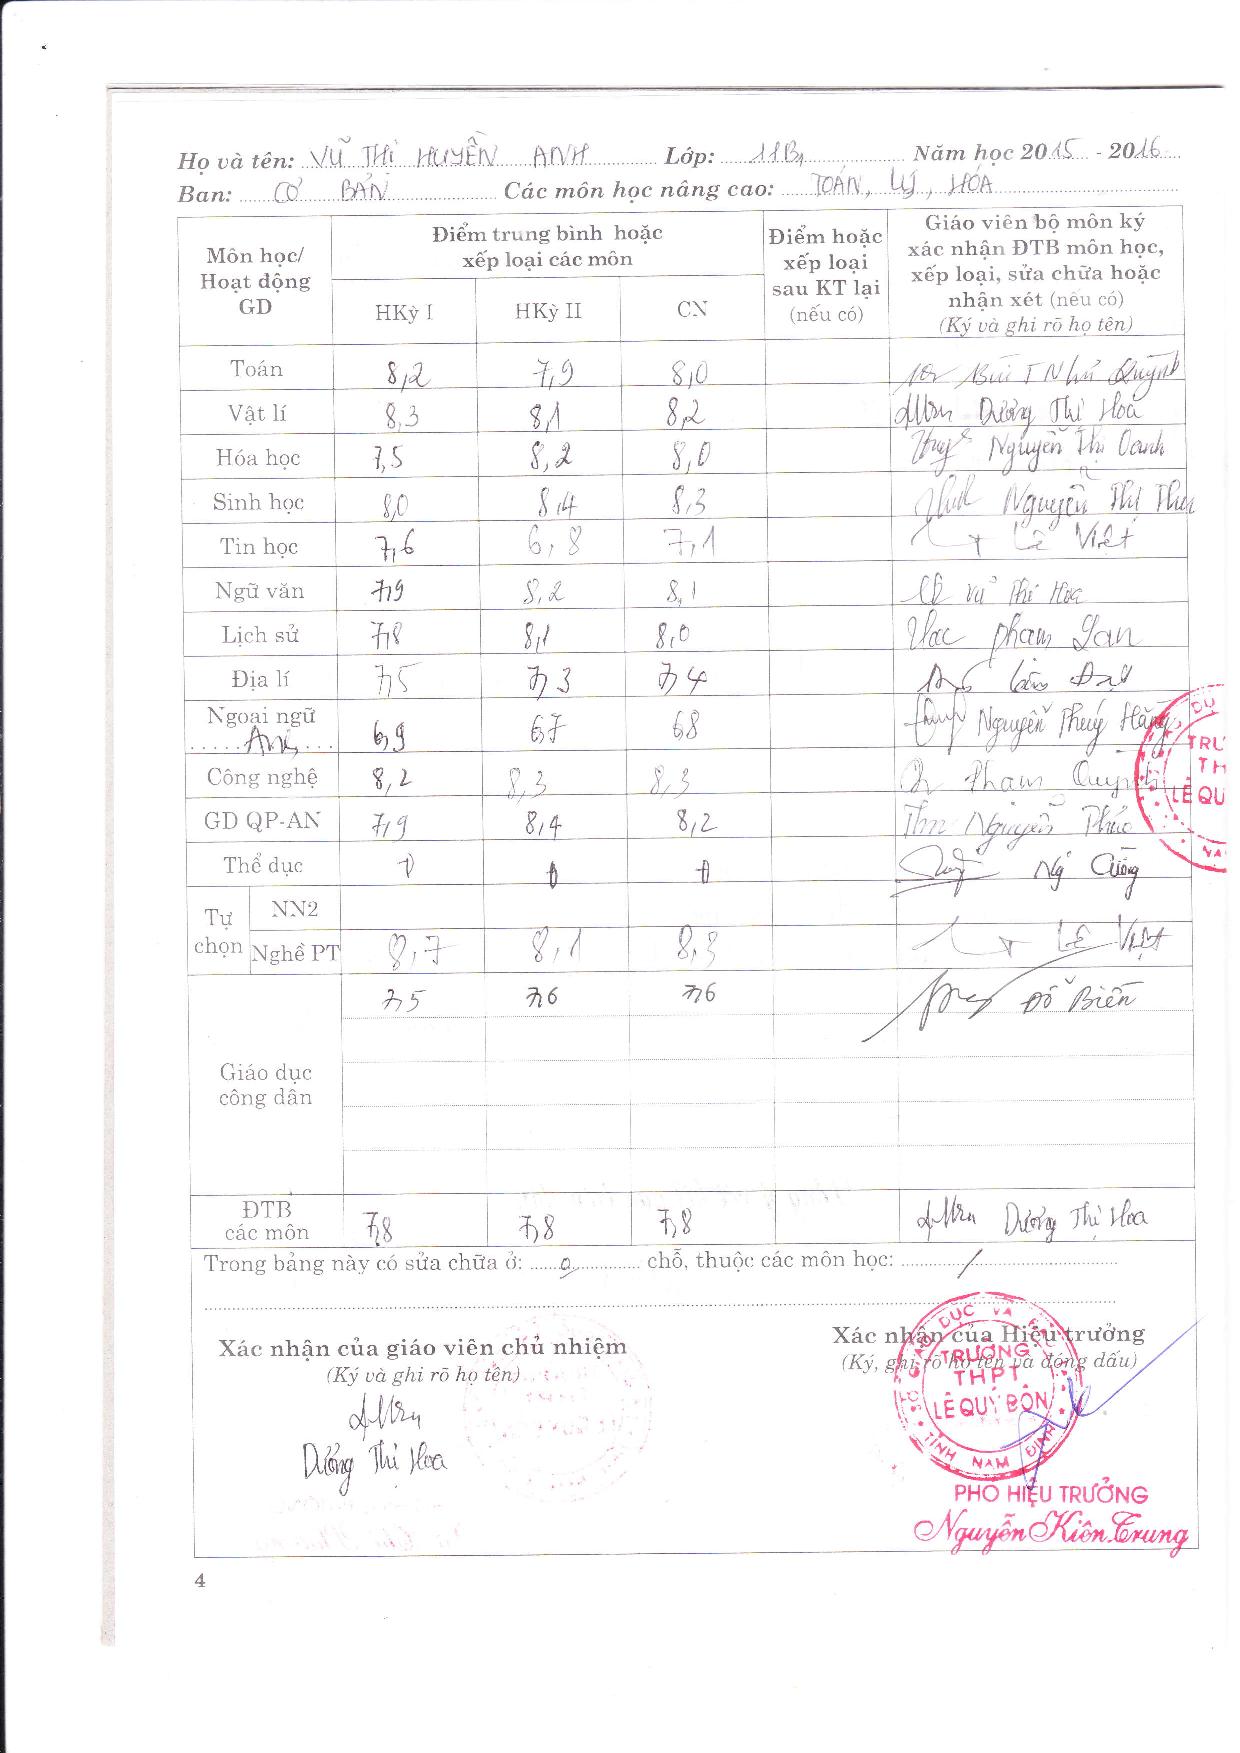 Họ và tên: VŨ THỊ HUYỀN ANH Lớp: 11B1 Năm học 2015 - 2016
Ban: CƠ BẢN Các môn học nâng cao: TOÁN, LÝ, HÓA
Môn học/ Hoạt động GD
Điểm trung bình hoặc xếp loại các môn
Điểm hoặc xếp loại sau KT lại (nếu có)
Giáo viên bộ môn ký xác nhận ĐTB môn học, xếp loại, sửa chữa hoặc nhận xét (nếu có) (Ký và ghi rõ họ tên)
HKỳ I HKỳ II CN
Toán 8,2 7,9 8,0 Bùi T Như Quỳnh
Vật lí 8,3 8,1 8,2 Dương Thị Hoa
Hóa học 7,5 8,2 8,0 Nguyễn Thị Oanh
Sinh học 8,0 8,4 8,3 Nguyễn Thị
Tin học 7,6 6,8 7,1 Lê Việt
Ngữ văn 7,9 8,2 8,1 Vũ Thị Hoa
Lịch sử 7,8 8,1 8,0 Phạm Lan
Địa lí 7,5 7,3 7,4
Ngoại ngữ 6,9 6,7 6,8 Nguyễn Thuý Hằng
Anh
Công nghệ 8,2 8,3 8,3 Phạm Quỳnh
GD QP-AN 7,9 8,4 8,2 Nguyễn
Thể dục Đ Đ Đ Ng Cường
Tự chọn
NN2
Nghề PT 8,7 8,1 8,3 Lê Việt
Giáo dục công dân 7,5 7,6 7,6 Đỗ Biển
ĐTB các môn 7,8 7,8 7,8 Dương Thị Hoa
Trong bảng này có sửa chữa ở: 0 chỗ, thuộc các môn học: /
Xác nhận của giáo viên chủ nhiệm
(Ký và ghi rõ họ tên)
Dương Thị Hoa
Xác nhận của Hiệu trưởng
(Ký, ghi rõ họ tên và đóng dấu)
TRƯỜNG
THPT
LÊ QUÝ ĐÔN
TỈNH NAM ĐỊNH
PHÓ HIỆU TRƯỞNG
Nguyễn Kiên Trung
4